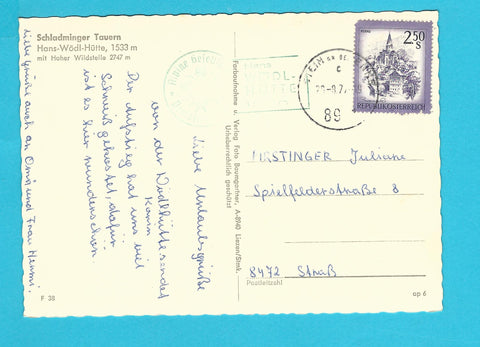 Schladminger Tauern
Hans-Wödl-Hütte, 1533 m
mit Hoher Wildstelle 2747 m
Liebe Urlaubsgrüße
von der Wödlhütte sendet
Karin
Der Aufstieg hat uns viel
Schweiß gekostet, dafür
ist es hier wunderschön.
Liebe Grüße auch an Oma und Frau
F 38
Farbaufnahme u. Verlag Foto Baumgartner, A-8940 Liezen/Stmk.
Urheberrechtlich geschützt
Hans
WÖDL-
HÜTTE
89
2.50
S
REPUBLIK ÖSTERREICH
Juliane
Spielfelderstraße 8
8472 Straß
Postleitzahl
op 6